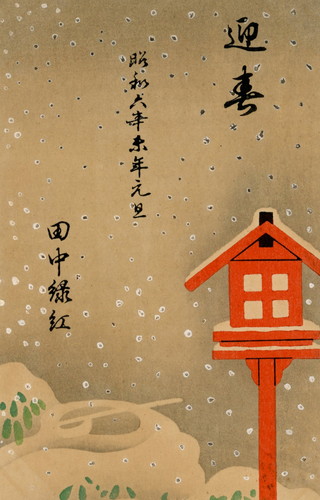 迎春
昭和六年未年元旦
田中緑紅